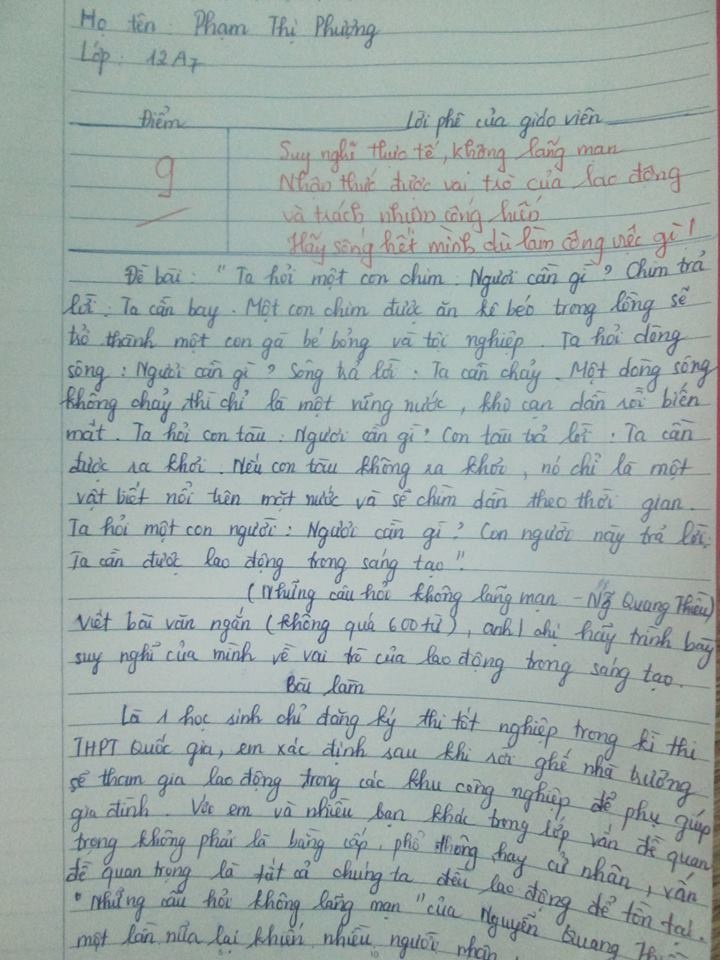 Họ tên: Phạm Thị Phượng
Lớp: 12A7
Điểm Lời phê của giáo viên
9
Suy nghĩ thực tế, không lãng mạn
Nhận thức được vai trò của lao động
và trách nhiệm cống hiến
Hãy sống hết mình dù làm công việc gì!
Đề bài: "Ta hỏi một con chim: Ngươi cần gì? Chim trả
lời: Ta cần bay. Một con chim được ăn kê béo trong lồng sẽ
trở thành một con gà bé bỏng và tội nghiệp. Ta hỏi dòng
sông: Ngươi cần gì? Sông trả lời: Ta cần chảy. Một dòng sông
không chảy thì chỉ là một vũng nước, khô cạn dần rồi biến
mất. Ta hỏi con tàu: Ngươi cần gì? Con tàu trả lời: Ta cần
được ra khơi. Nếu con tàu không ra khơi, nó chỉ là một
vật biết nổi trên mặt nước và sẽ chìm dần theo thời gian.
Ta hỏi một con người: Ngươi cần gì? Con người này trả lời:
Ta cần được lao động trong sáng tạo".
(Những câu hỏi không lãng mạn - Ng̃ Quang Thiều)
Viết bài văn ngắn (không quá 600 từ), anh/chị hãy trình bày
suy nghĩ của mình về vai trò của lao động trong sáng tạo.
Bài làm
Là 1 học sinh chỉ đăng ký thi tốt nghiệp trong kì thi
THPT Quốc gia, em xác định sau khi rời ghế nhà trường
sẽ tham gia lao động trong các khu công nghiệp để phụ giúp
gia đình. Với em và nhiều bạn khác trong lớp vấn đề quan
trọng không phải là bằng cấp, phổ thông hay cử nhân, vấn
đề quan trọng là tất cả chúng ta đều lao động để tồn tại.
"Những câu hỏi không lãng mạn" của Nguyễn Quang
một lần nữa lại khiến nhiều người nhận